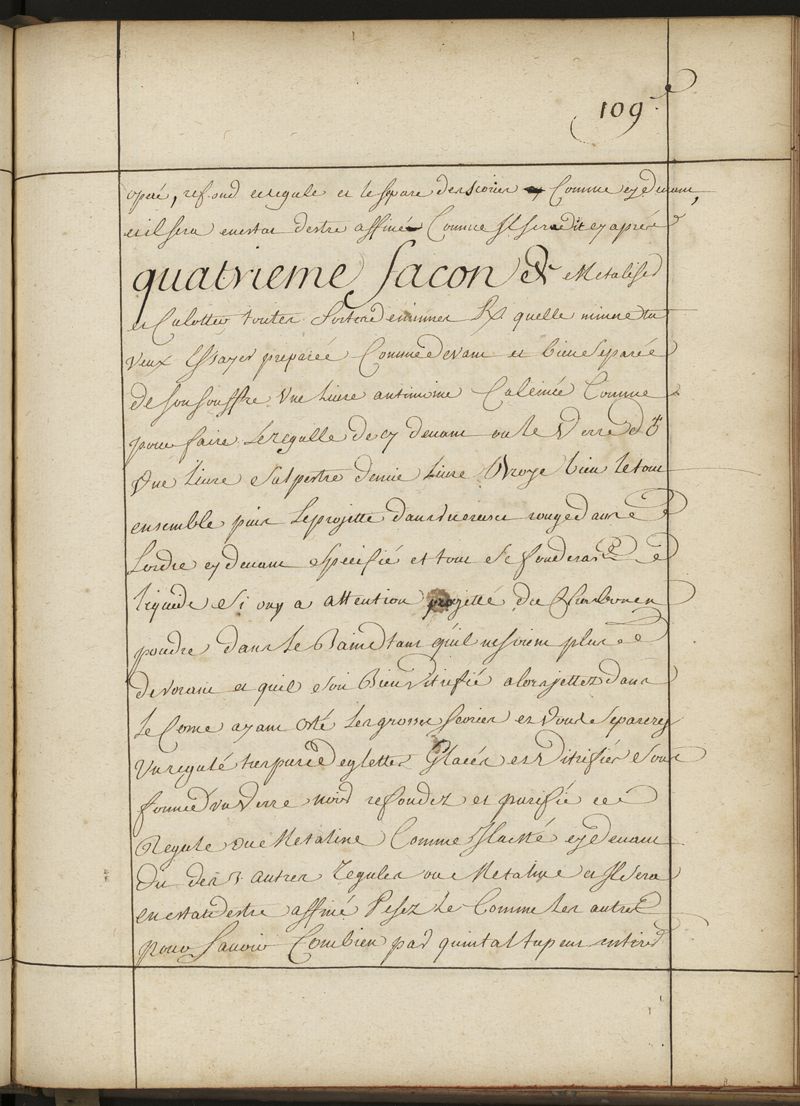 109.e
opéré, refond ce regule et le spare des scories comme cy devant,
et il sera en estat destre affiné comme Il sera dit cy après
quatrieme facon de Metaliser
et Culotter toutes sortes de minnes Rx quelle minne tu
veux Essayer preparée Comme devant et bien separée
de son souffre une livre antimoine Calcinée Comme
pour faire Le regulle de cy devant ou le verre d
une livre salpestre demie livre Broye bien le tout
ensemble puis Le projette dans un creuset rouge dans
Lordre cy devant specifié et tout se fondera
liquide si on y a attention projetté du Charbon en
poudre dans le Bain tant quil ne soient plus
devorant et quil soit Bien vitrifié alors jettez dans
Le Cone ayant osté Les grosses scories et vous separerez
un regulé tres pur des Glacées et vitrifiés sous
forme du verre noir refondez et purifié ce
Regule ou Metaline Comme Il a esté cy devant
Dit des 3 autres regules ou Metaline et Il sera
en estat destre affiné Pesez Le Comme Les autres
pour Savoir Combien par quintal tu peux entirer